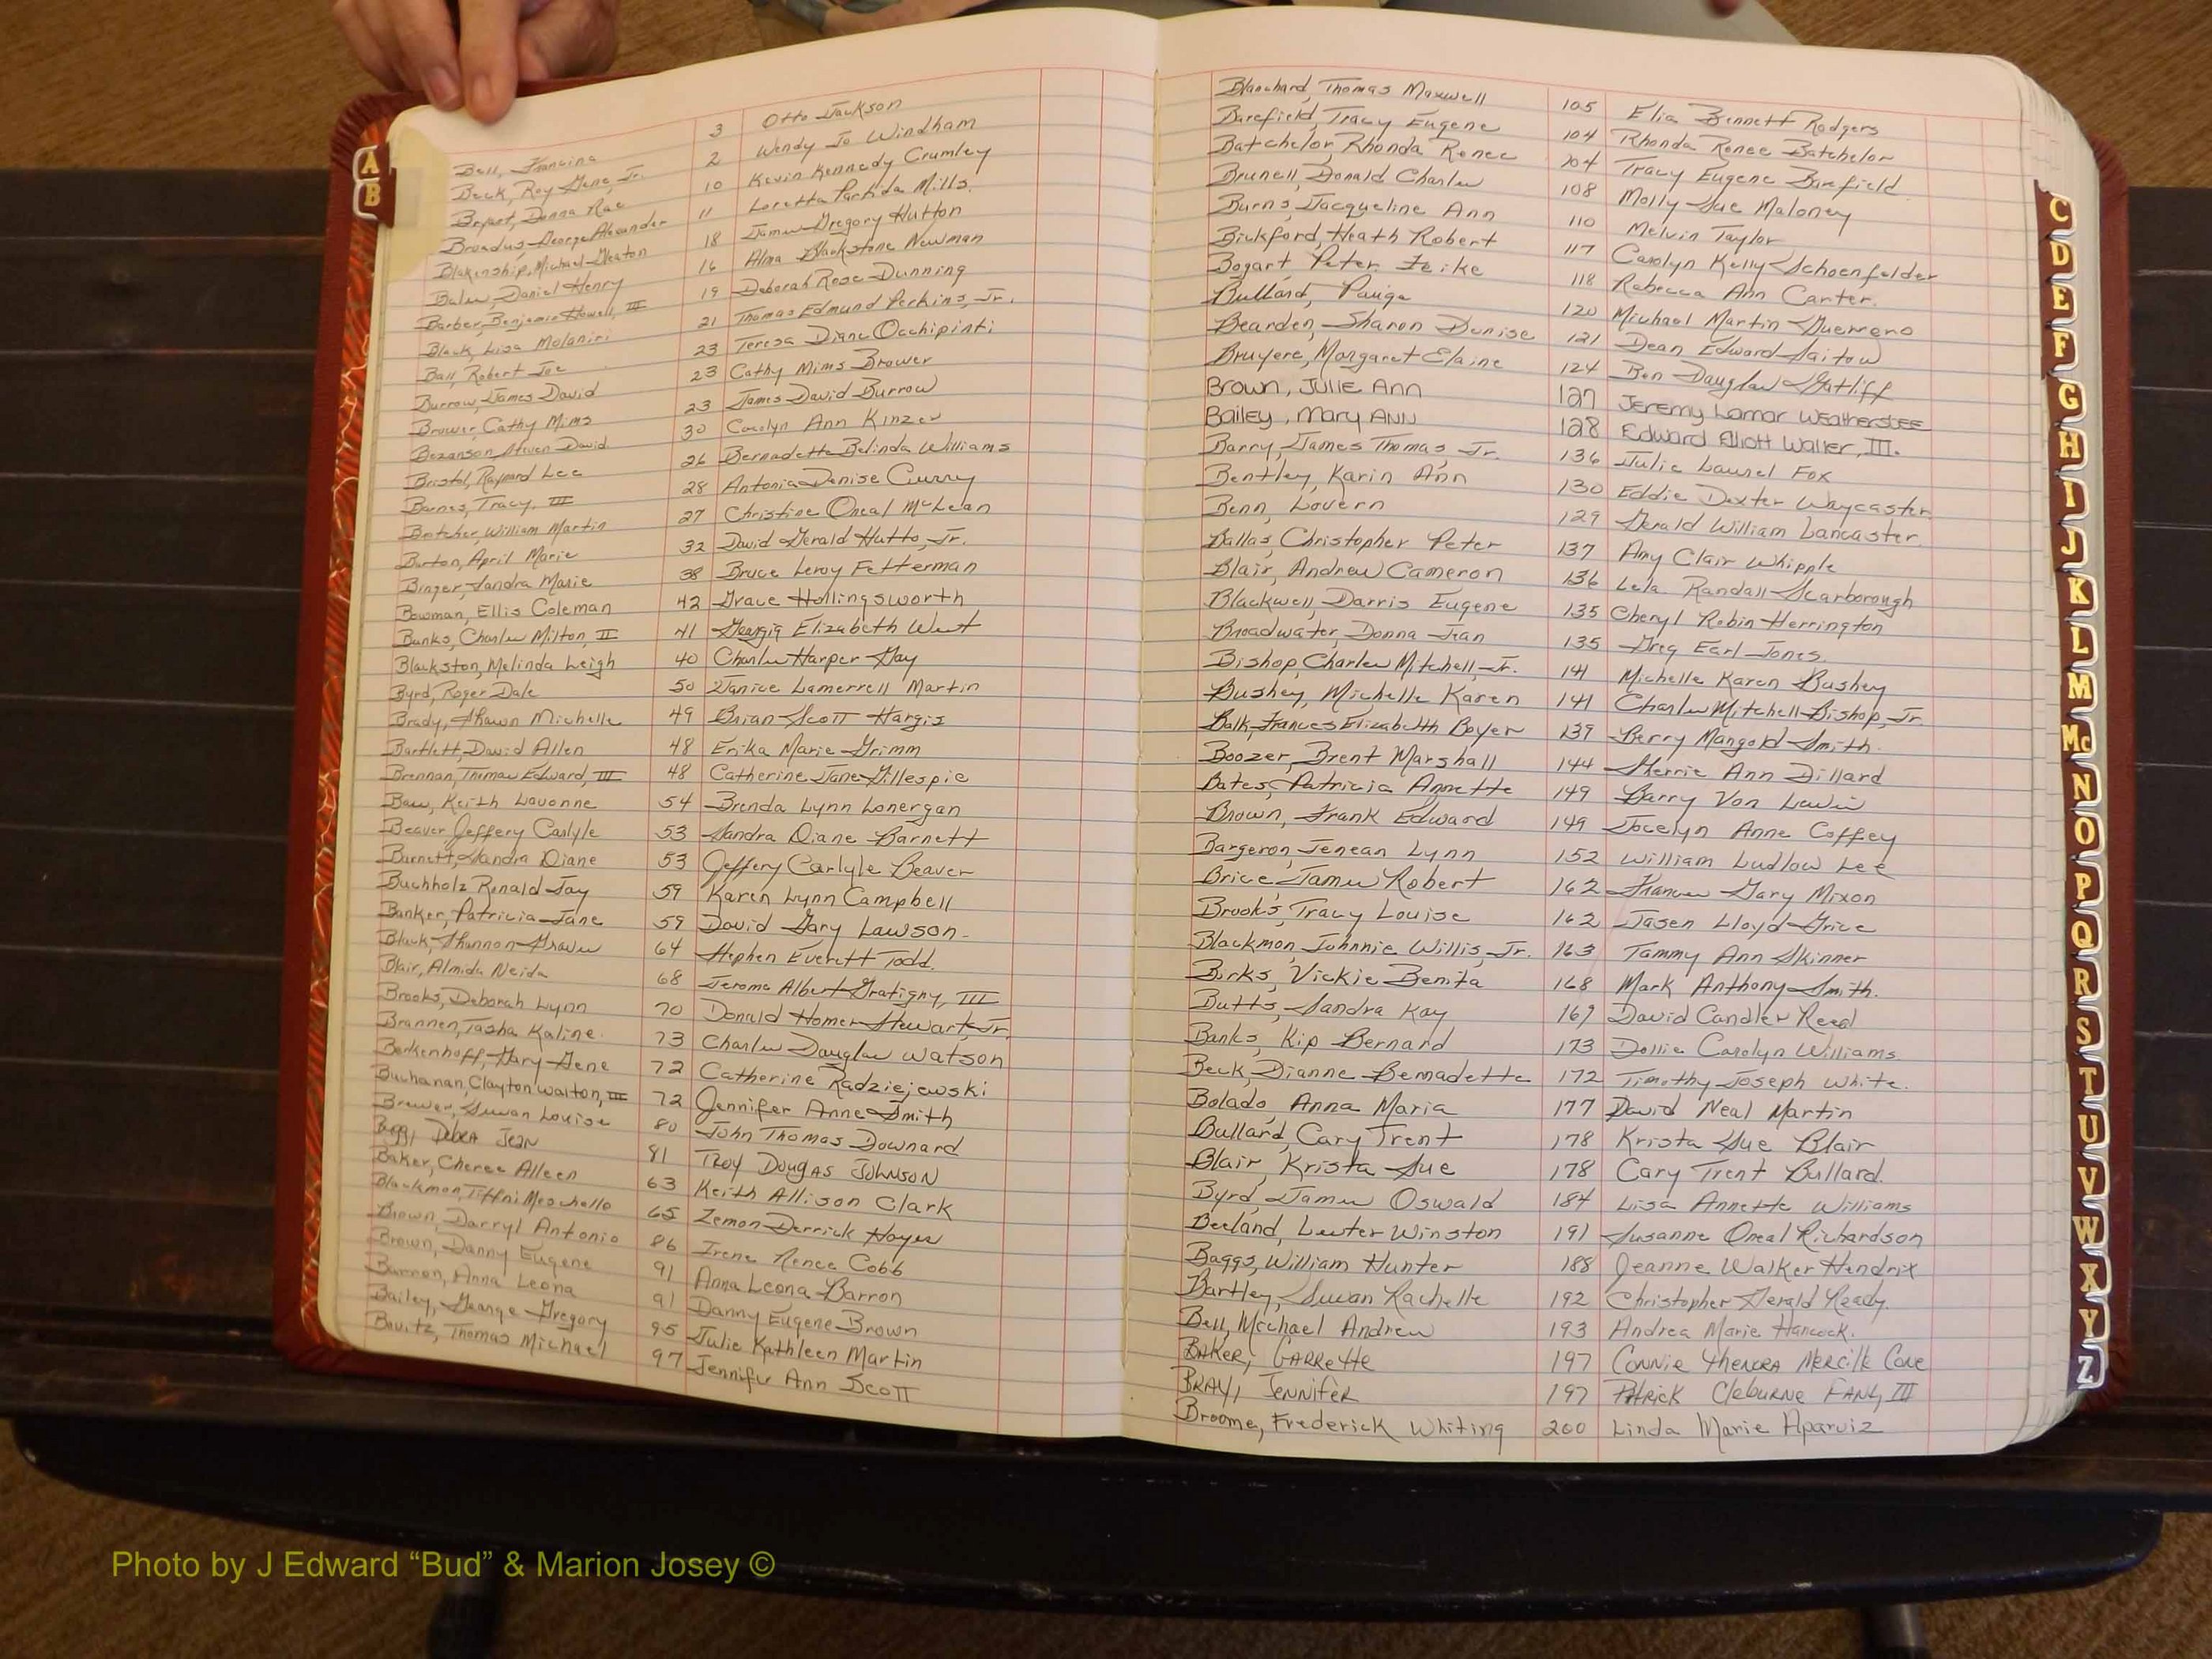 A
B
Bell, Francina 3 Otto Jackson
Beck, Roy Gene, Jr. 2 Wendy Jo Windham
Donna Rae 10 Kevin Kennedy Crumley
Broadus, George Alexander 11 Loretta Parkida Mills.
Blakenship, Michael Heaton 18 James Gregory Hutton
Daniel Henry 16 Alma Blackstone Newman
Barber, Benjamin Howell, III 19 Deborah Rose Dunning
Black, Lisa 21 Thomas Edmund Perkins, Jr.
Ball, Robert Joe 23 Teresa Diane Occhipinti
Burrow, James David 23 Cathy Mims Brower
Brower, Cathy Mims 23 James David Burrow
Bezanson, Steven David 30 Carolyn Ann Kinzer
Bristol, Raynard Lee 26 Bernadette Belinda Williams
Barnes, Tracy, III 28 Antonia Denise Curry
Botcher, William Martin 27 Christine Oneal McLean
Burton, April Marie 32 David Gerald Hutto, Jr.
Binger, Sandra Marie 38 Bruce Leroy Fetterman
Bowman, Ellis Coleman 42 Grace Hollingsworth
Banks, Charles Milton, II 41 Georgia Elizabeth West
Blackston, Melinda Leigh 40 Charles Harper Gay
Byrd, Roger Dale 50 Janice Lamerrell Martin
Brady, Shawn Michelle 49 Brian Scott Hargis
Bartlett, David Allen 48 Erika Marie Grimm
Brennan, Thomas Edward, III 48 Catherine Jane Gillespie
Bass, Keith Lavonne 54 Brenda Lynn Lonergan
Beaver Jeffery Carlyle 53 Sandra Diane Barnett
Barnett, Sandra Diane 53 Jeffery Carlyle Beaver
Buchholz Ronald Jay 59 Karen Lynn Campbell
Banker, Patricia Jane 59 David Gary Lawson
Black, Shannon Graves 64 Stephen Everett Todd.
Blair, Almida Neida 68 Jerome Albert Gratigny, III
Brooks, Deborah Lynn 70 Donald Homer Stewart, Jr.
Brannen, Tasha Kaline. 73 Charles Douglas Watson
Berkenhoff, Gary Gene 72 Catherine Radziejewski
Buchanan, Clayton Walton, III 72 Jennifer Anne Smith
Brewer, Susan Louise 80 John Thomas Downard
Debra Jean 81 Troy Dougas Johnson
Baker, Cheree Alleen 63 Keith Allison Clark
Blackmon, Tiffni Meachelle 65 Zemon Derrick Hayes
Brown, Darryl Antonio 86 Irene Renee Cobb
Brown, Danny Eugene 91 Anna Leona Barron
Barron, Anna Leona 91 Danny Eugene Brown
Bailey, George Gregory 95 Julie Kathleen Martin
Bovitz, Thomas Michael 97 Jennifer Ann Scott
Blanchard, Thomas Maxwell 105 Elia Bennett Rodgers
Barefield, Tracy Eugene 104 Rhonda Renee Batchelor
Batchelor, Rhonda Renee 104 Tracy Eugene Barefield
Brunell, Donald Charles 108 Molly Sue Maloney
Burns, Jacqueline Ann 110 Melvin Taylor
Bickford, Heath Robert 117 Carolyn Kelly Schoenfelder
Bogart, Peter Feike 118 Rebecca Ann Carter.
Bullard, Paige 120 Michael Martin Guerrero
Bearden, Sharon Denise 121 Dean Edward Saitow
Bruyere, Margaret Elaine 124 Ben Douglas Gatliff
Brown, Julie Ann 127 Jeremy Lamar Weathersbee
Bailey, Mary Ann 128 Edward Elliott Waller, III.
Barry, James Thomas, Jr. 136 Julie Laurel Fox
Bentley, Karin Ann 130 Eddie Dexter Waycaster
Benn, Lovern 129 Gerald William Lancaster
Ballas, Christopher Peter 137 Amy Clair Whipple
Blair, Andrew Cameron 136 Lela Randall Scarborough
Blackwell, Darris Eugene 135 Cheryl Robin Herrington
Broadwater, Donna Jean 135 Greg Earl Jones
Bishop, Charles Mitchell, Jr. 141 Michelle Karen Bushey
Bushey, Michelle Karen 141 Charles Mitchell Bishop, Jr.
Balk, Frances Elizabeth Boyer 139 Berry Mangold Smith
Boozer, Brent Marshall 144 Sherrie Ann Dillard
Bates, Patricia Annette 149 Barry Von Lewis
Brown, Frank Edward 149 Jocelyn Anne Coffey
Bargeron, Jenean Lynn 152 William Ludlow Lee
Brice James Robert 162 Frances Gary Mixon
Brooks, Tracy Louise 162 Jasen Lloyd Grice
Blackmon, Johnnie Willis, Jr. 163 Tammy Ann Skinner
Birks, Vickie Benita 168 Mark Anthony Smith.
Butts, Sandra Kay 169 David Candler Reed
Banks, Kip Bernard 173 Dollie Carolyn Williams
Beck, Dianne Bernadette 172 Timothy Joseph White.
Bolado, Anna Maria 177 David Neal Martin
Bullard, Cary Trent 178 Krista Sue Blair
Blair, Krista Sue 178 Cary Trent Bullard.
Byrd, James Oswald 184 Lisa Annette Williams
Beeland, Lester Winston 191 Susanne Oneal Richardson
Baggs, William Hunter 188 Jeanne Walker Hendrix
Bartley, Susan Rachelle 192 Christopher Gerald Ready.
Bell, Michael Andrew 193 Andrea Marie Hancock.
Baker, Garrette 197 Connie
Bray, Jennifer 197 Patrick Cleburne III
Broome, Frederick Whiting 200 Linda Marie Aparviz
C
D
E
F
G
H
I
J
K
L
M
Mc
N
O
P
Q
R
S
T
U
V
W
X
Y
Z
Photo by J Edward “Bud” & Marion Josey ©